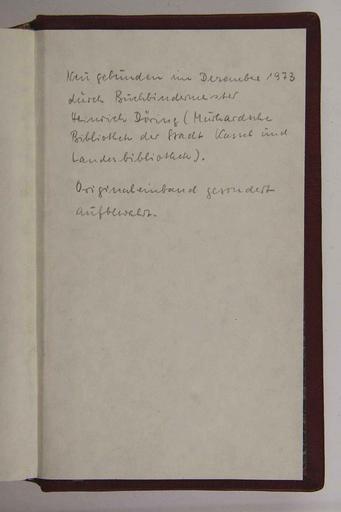 Neu gebunden im Dezember 1973
durch Buchbindermeister
Heinrich Döring (Murhardsche
Bibliothek der Stadt Kassel und
Landesbibliothek).
Originaleinband gesondert
aufbewahrt.